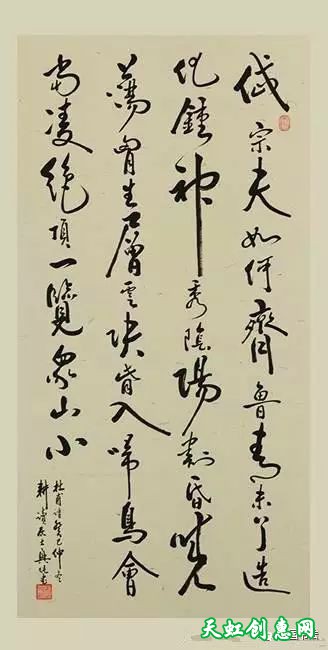 岱宗夫如何齊魯青未了造
化鍾神秀陰陽割昏曉
蕩胷生層雲決眥入歸鳥會
當凌絕頂一覽眾山小
杜甫詩癸巳仲冬
耕居士書
天虹创惠网